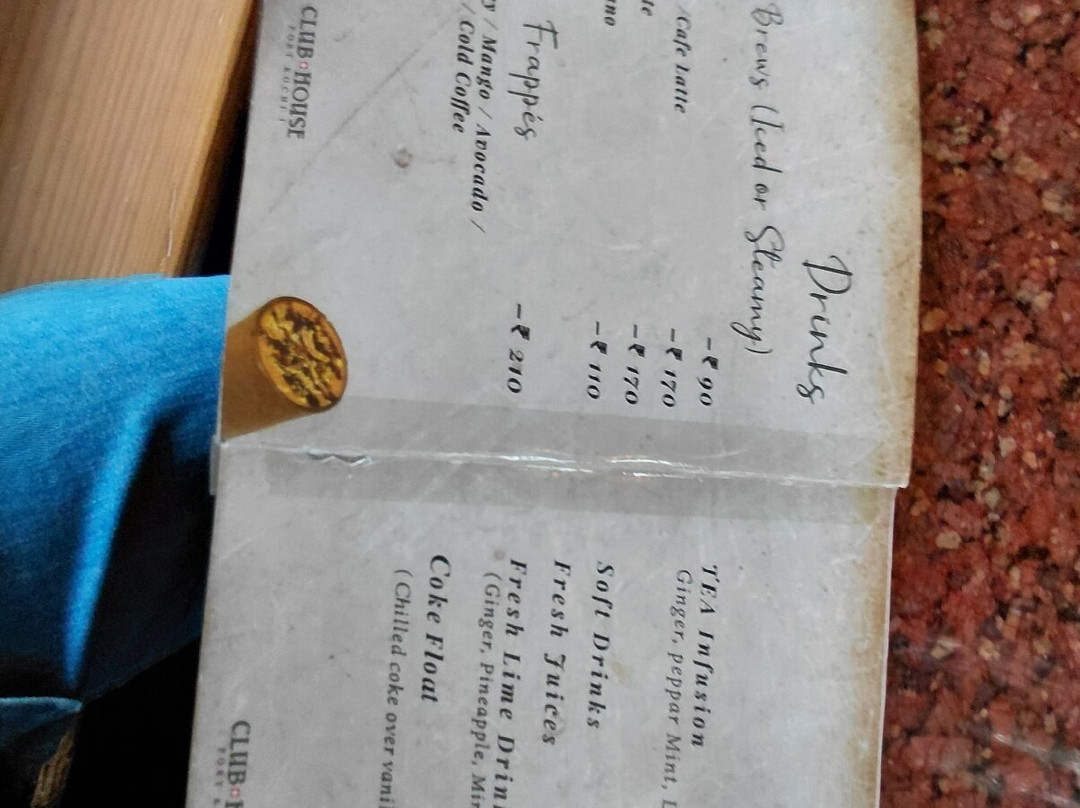 Drinks
Brews (Iced or Steamy)
-₹ 90
/Cafe Latte -₹ 170
-₹ 170
-₹ 110
Frappés
/ Mango / Avocado / -₹ 210
/ Cold Coffee
CLUB HOUSE
FORT KOCHI
TEA Infusion
Ginger, peppar Mint,
Soft Drinks
Fresh Juices
Fresh Lime
(Ginger, Pineapple,
Coke Float
(Chilled coke over
CLUB
FORT